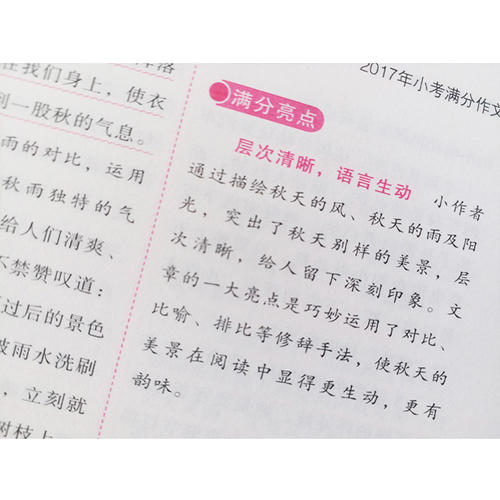 2017年小考满分作文
在我们身上，使衣
到一股秋的气息。
雨的对比，运用
秋雨独特的气
给人们清爽、
不禁赞叹道：
过后的景色
被雨水洗刷
，立刻就
树枝上
满分亮点
层次清晰，语言生动 小作者
通过描绘秋天的风、秋天的雨及阳
光，突出了秋天别样的美景，层
次清晰，给人留下深刻印象。文
章的一大亮点是巧妙运用了对比、
比喻、排比等修辞手法，使秋天的
美景在阅读中显得更生动，更有
韵味。